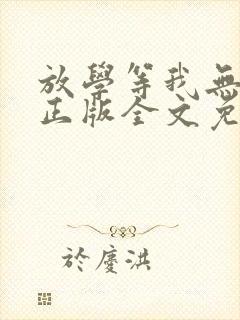 放學等我無
正版全文免
於慶洪